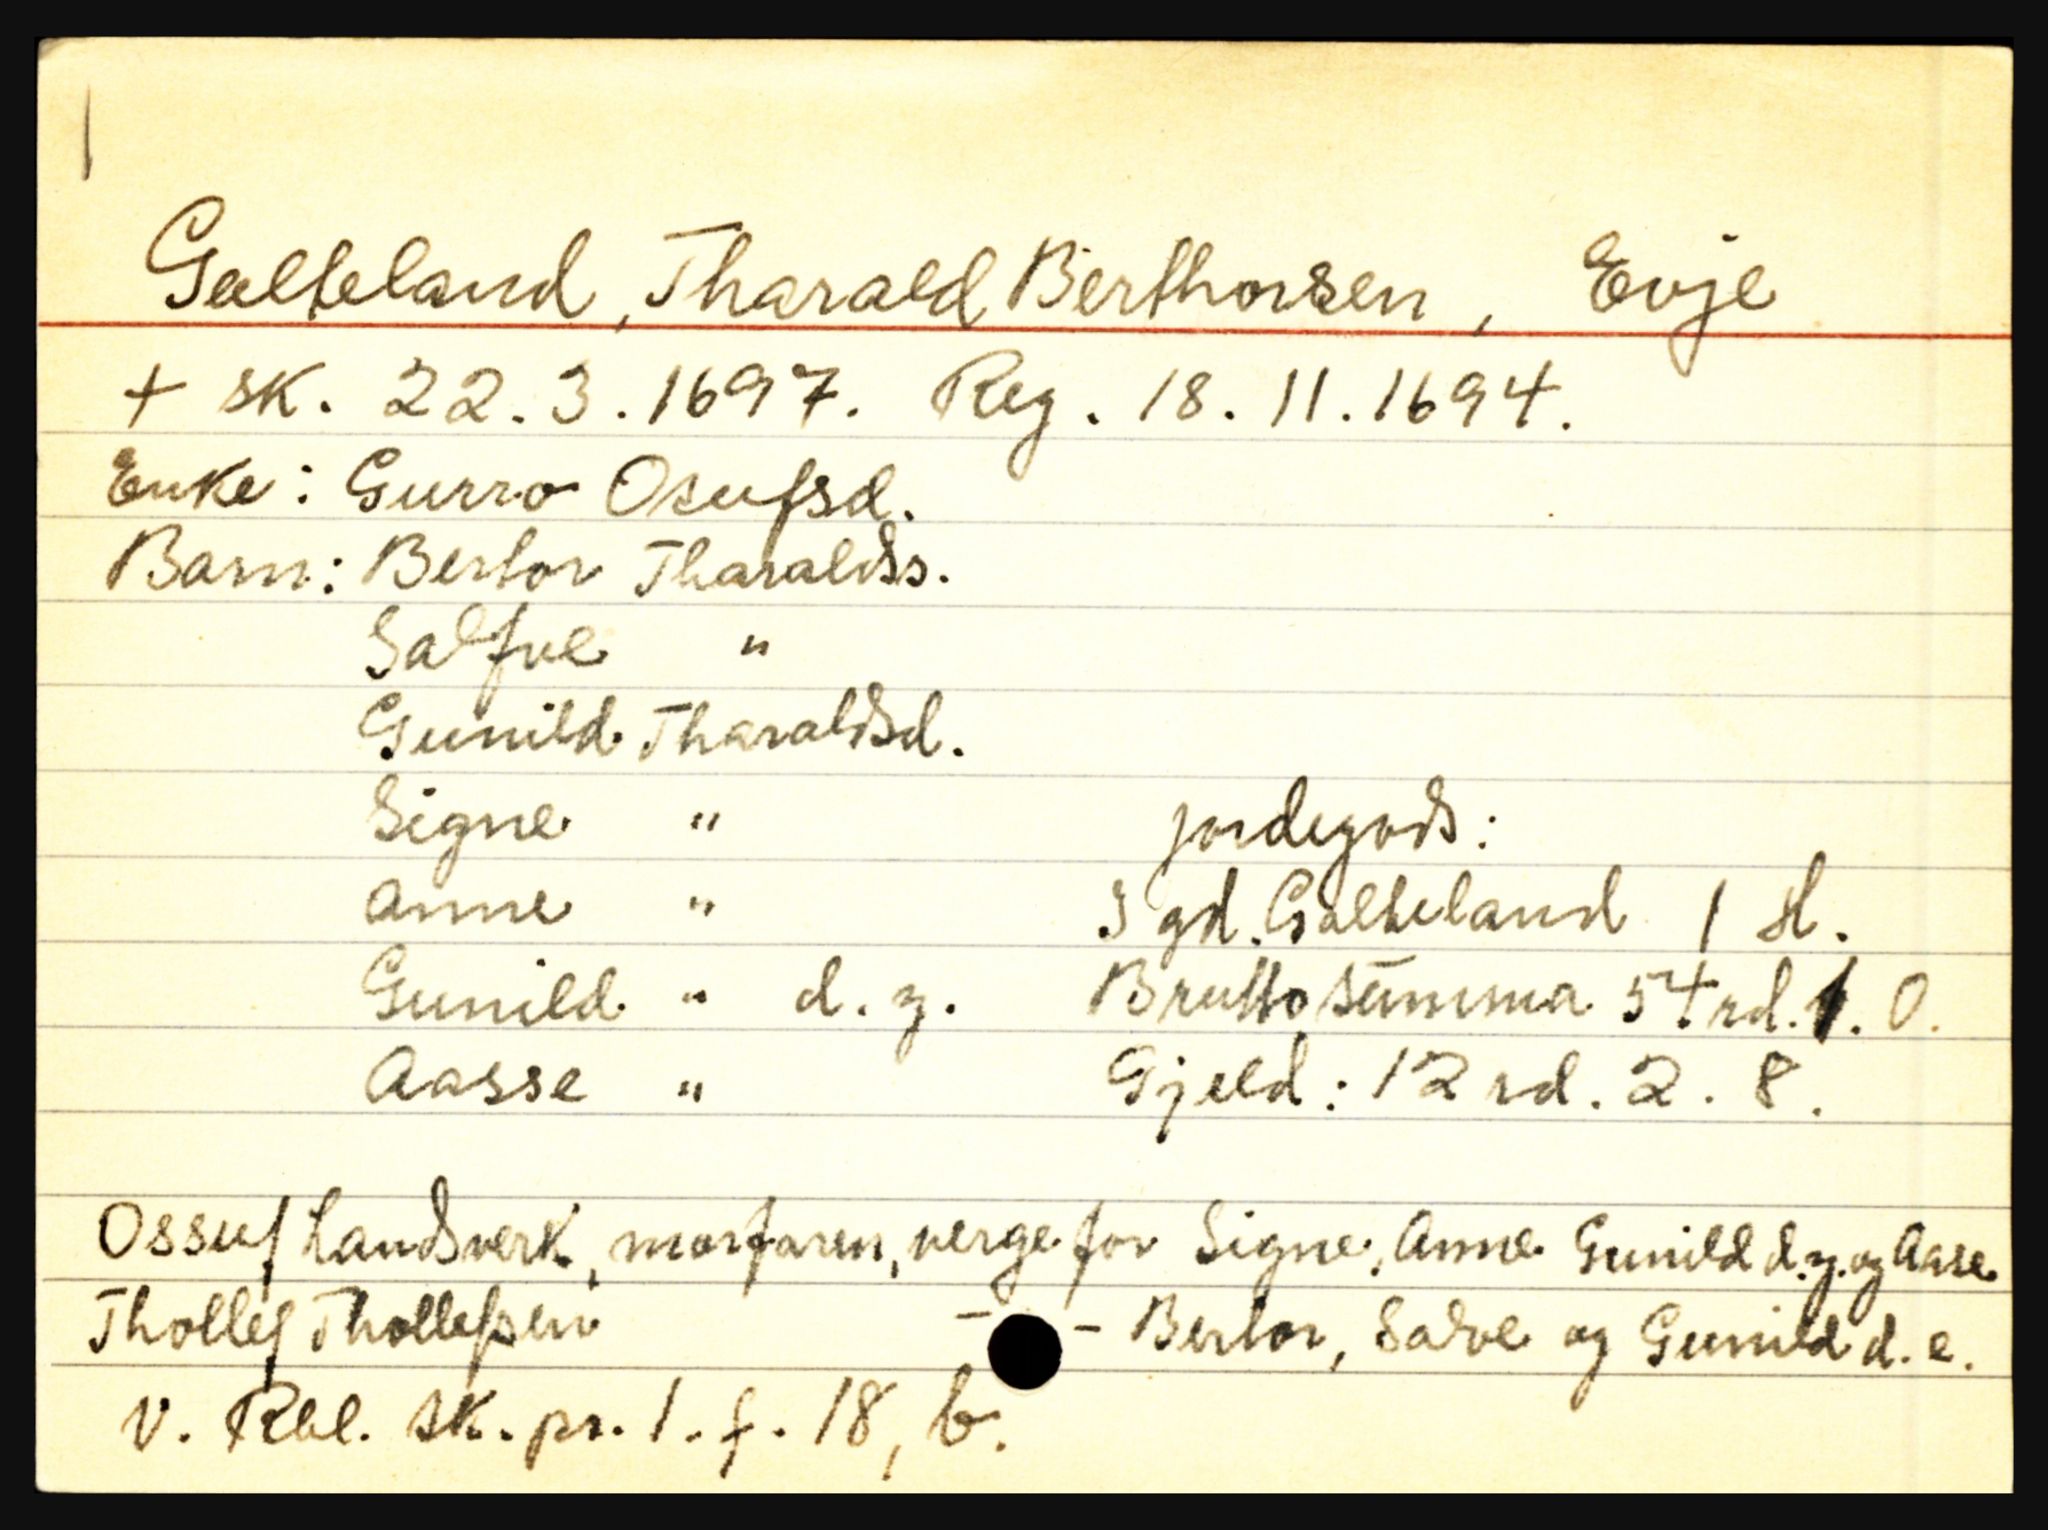 Galteland, Tharald Berthorsen, Evje
+ sk. 22.3.1697. Reg. 18.11.1694.
Enke: Gurro Osufsd.
Barn: Bertor Tharaldss.
Salfve "
Gunild Tharaldsd.
Signe "
Anne "
Gunild " d.y.
Aasse "
jordegods:
I gd. Galteland 1 hd.
Brutto summa 54 rd. 1. 0.
Gjeld: 12 rd. 2. 8.
Ossuf Landsverk, morfaren, verge for Signe, Anne Gunild d.y. og Aase
Thollef Thollefsen - - Bertor, Salve og Gunild d.e.
V. Rbl. sk.pr. 1. f. 18, b.